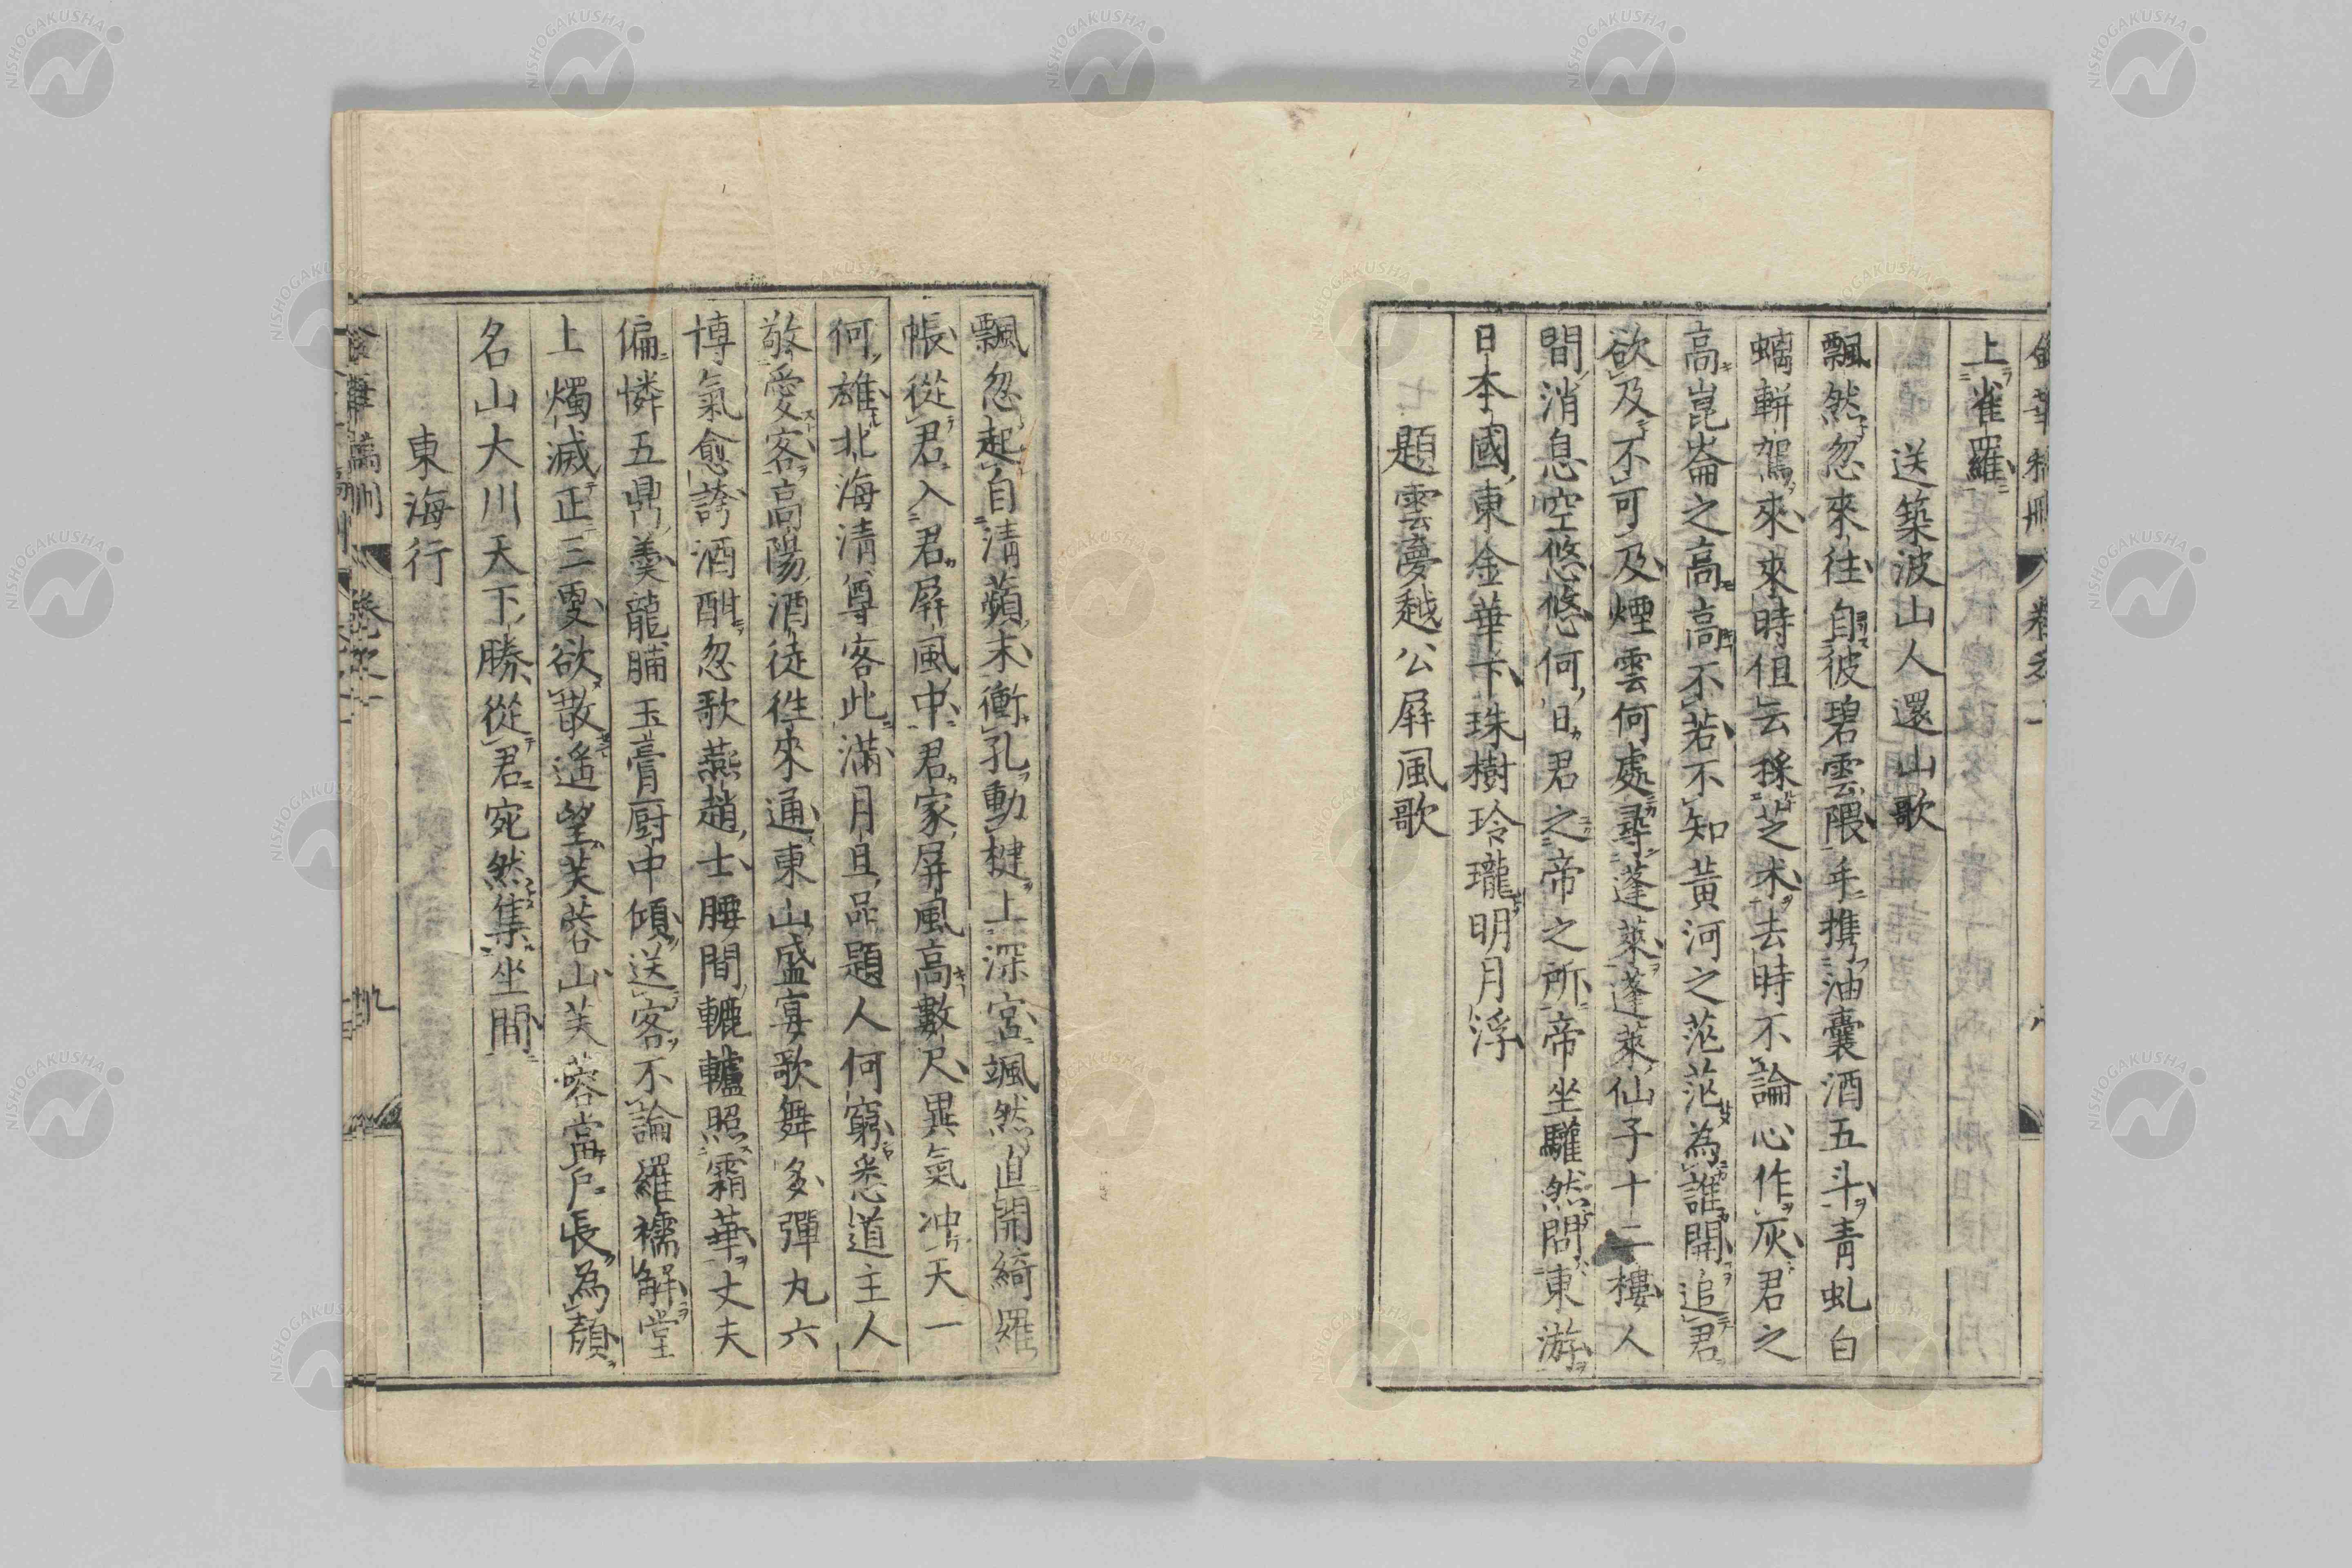 上雀羅
送築波山人還山歌
飄然忽來往自彼碧雲隈手携油囊酒五斗青虬白
螭輧駕來來時但云採芝朮去時不論心作灰君之
高崑崙之高高不若不知黃河之茫茫為誰開追君
欲及不可及煙雲何處尋蓬萊蓬萊仙子十二樓人
間消息空悠悠何日君之帝之所帝坐驩然問東游
日本國東金華下珠樹玲瓏明月浮
題雲夢越公屛風歌
飄忽起自清蘋末衝孔動楗上深宮颯然直開綺羅
帳從君入君屛風中君家屏風高數尺異氣冲天一
何雄北海清尊客此滿月旦品題人何窮悉道主人
敬愛客高陽酒徒徃來通東山盛宴歌舞多彈丸六
博氣愈誇酒酣忽歌燕趙士腰間轆轤照霜華丈夫
偏憐五鼎羹龍脯玉膏厨中傾送客不論羅襦解堂
上燭滅正三更欲散遙望芙蓉山芙蓉當戶長為顏
名山大川天下勝從君宛然集坐間
東海行
卷之一
九